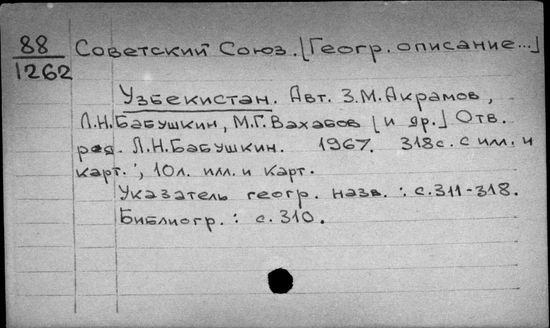 88
1262
Советский Союз. [Геогр. описание...]
Узбекистан. Авт. З.М. Акрамов,
Л.Н. Бабушкин, М.Г. Вахабов [и др.] Отв.
ред. Л.Н. Бабушкин. 1967. 318с. с илл. и
карт.; 10л. илл. и карт.
Указатель геогр. назв.: с.311-318.
Библиогр.: с.310.